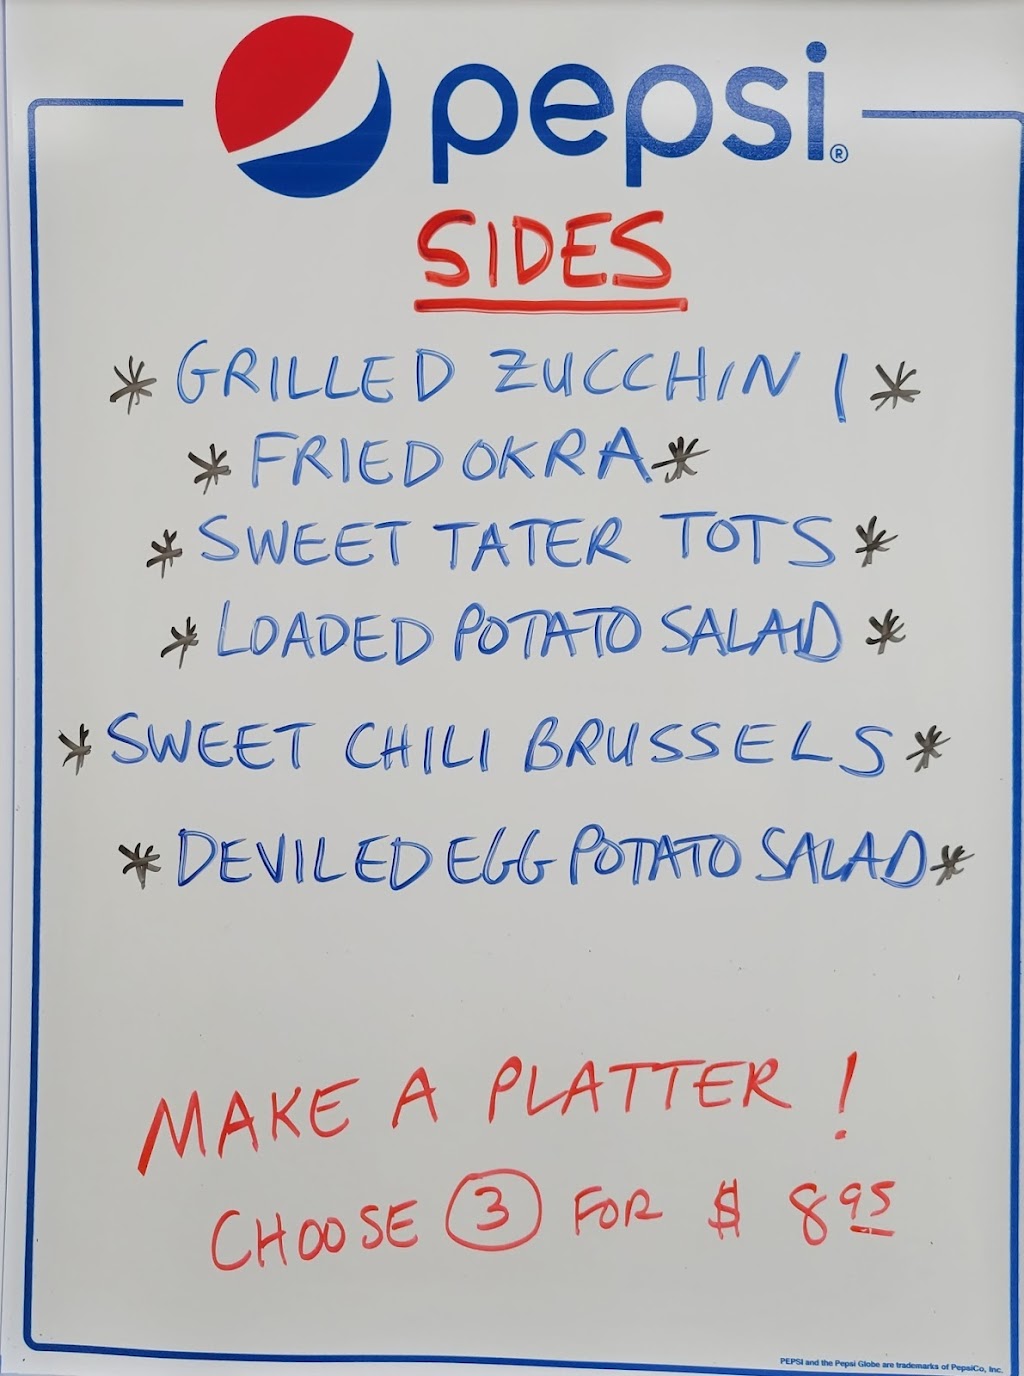 pepsi®
SIDES
* GRILLED ZUCCHINI *
* FRIED OKRA *
* SWEET TATER TOTS *
* LOADED POTATO SALAD *
* SWEET CHILI BRUSSELS *
* DEVILED EGG POTATO SALAD *
MAKE A PLATTER!
CHOOSE 3 FOR $ 8 95
PEPSI and the Pepsi Globe are trademarks of PepsiCo, Inc.